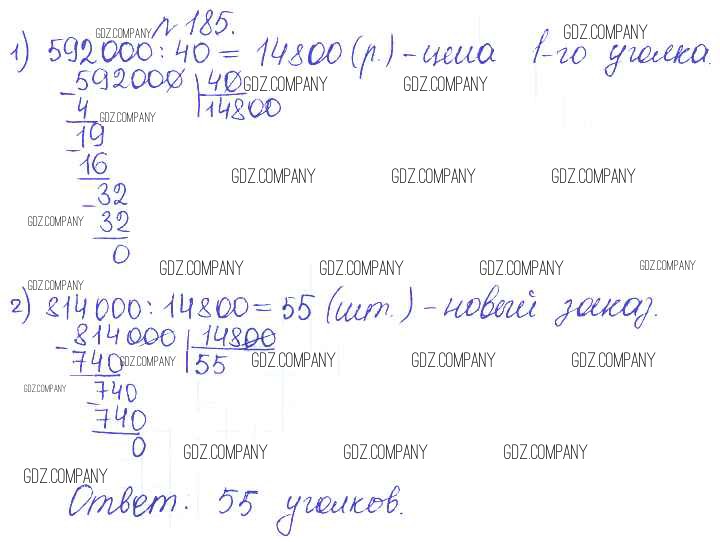 GDZ.COMPANY № 185. GDZ.COMPANY
1) 592000 : 40 = 14800 (р.) - цена 1-го уголка.
592000 40 GDZ.COMPANY GDZ.COMPANY
- 4 GDZ.COMPANY 14800
19
- 16 GDZ.COMPANY GDZ.COMPANY GDZ.COMPANY
- 32
GDZ.COMPANY 32
0
GDZ.COMPANY GDZ.COMPANY GDZ.COMPANY GDZ.COMPANY
GDZ.COMPANY
2) 814000 : 14800 = 55 (шт.) - новый заказ.
- 814000 14800
740 GDZ.COMPANY 55 GDZ.COMPANY GDZ.COMPANY GDZ.COMPANY
GDZ.COMPANY - 740
740
0 GDZ.COMPANY GDZ.COMPANY GDZ.COMPANY
GDZ.COMPANY
Ответ: 55 уголков.